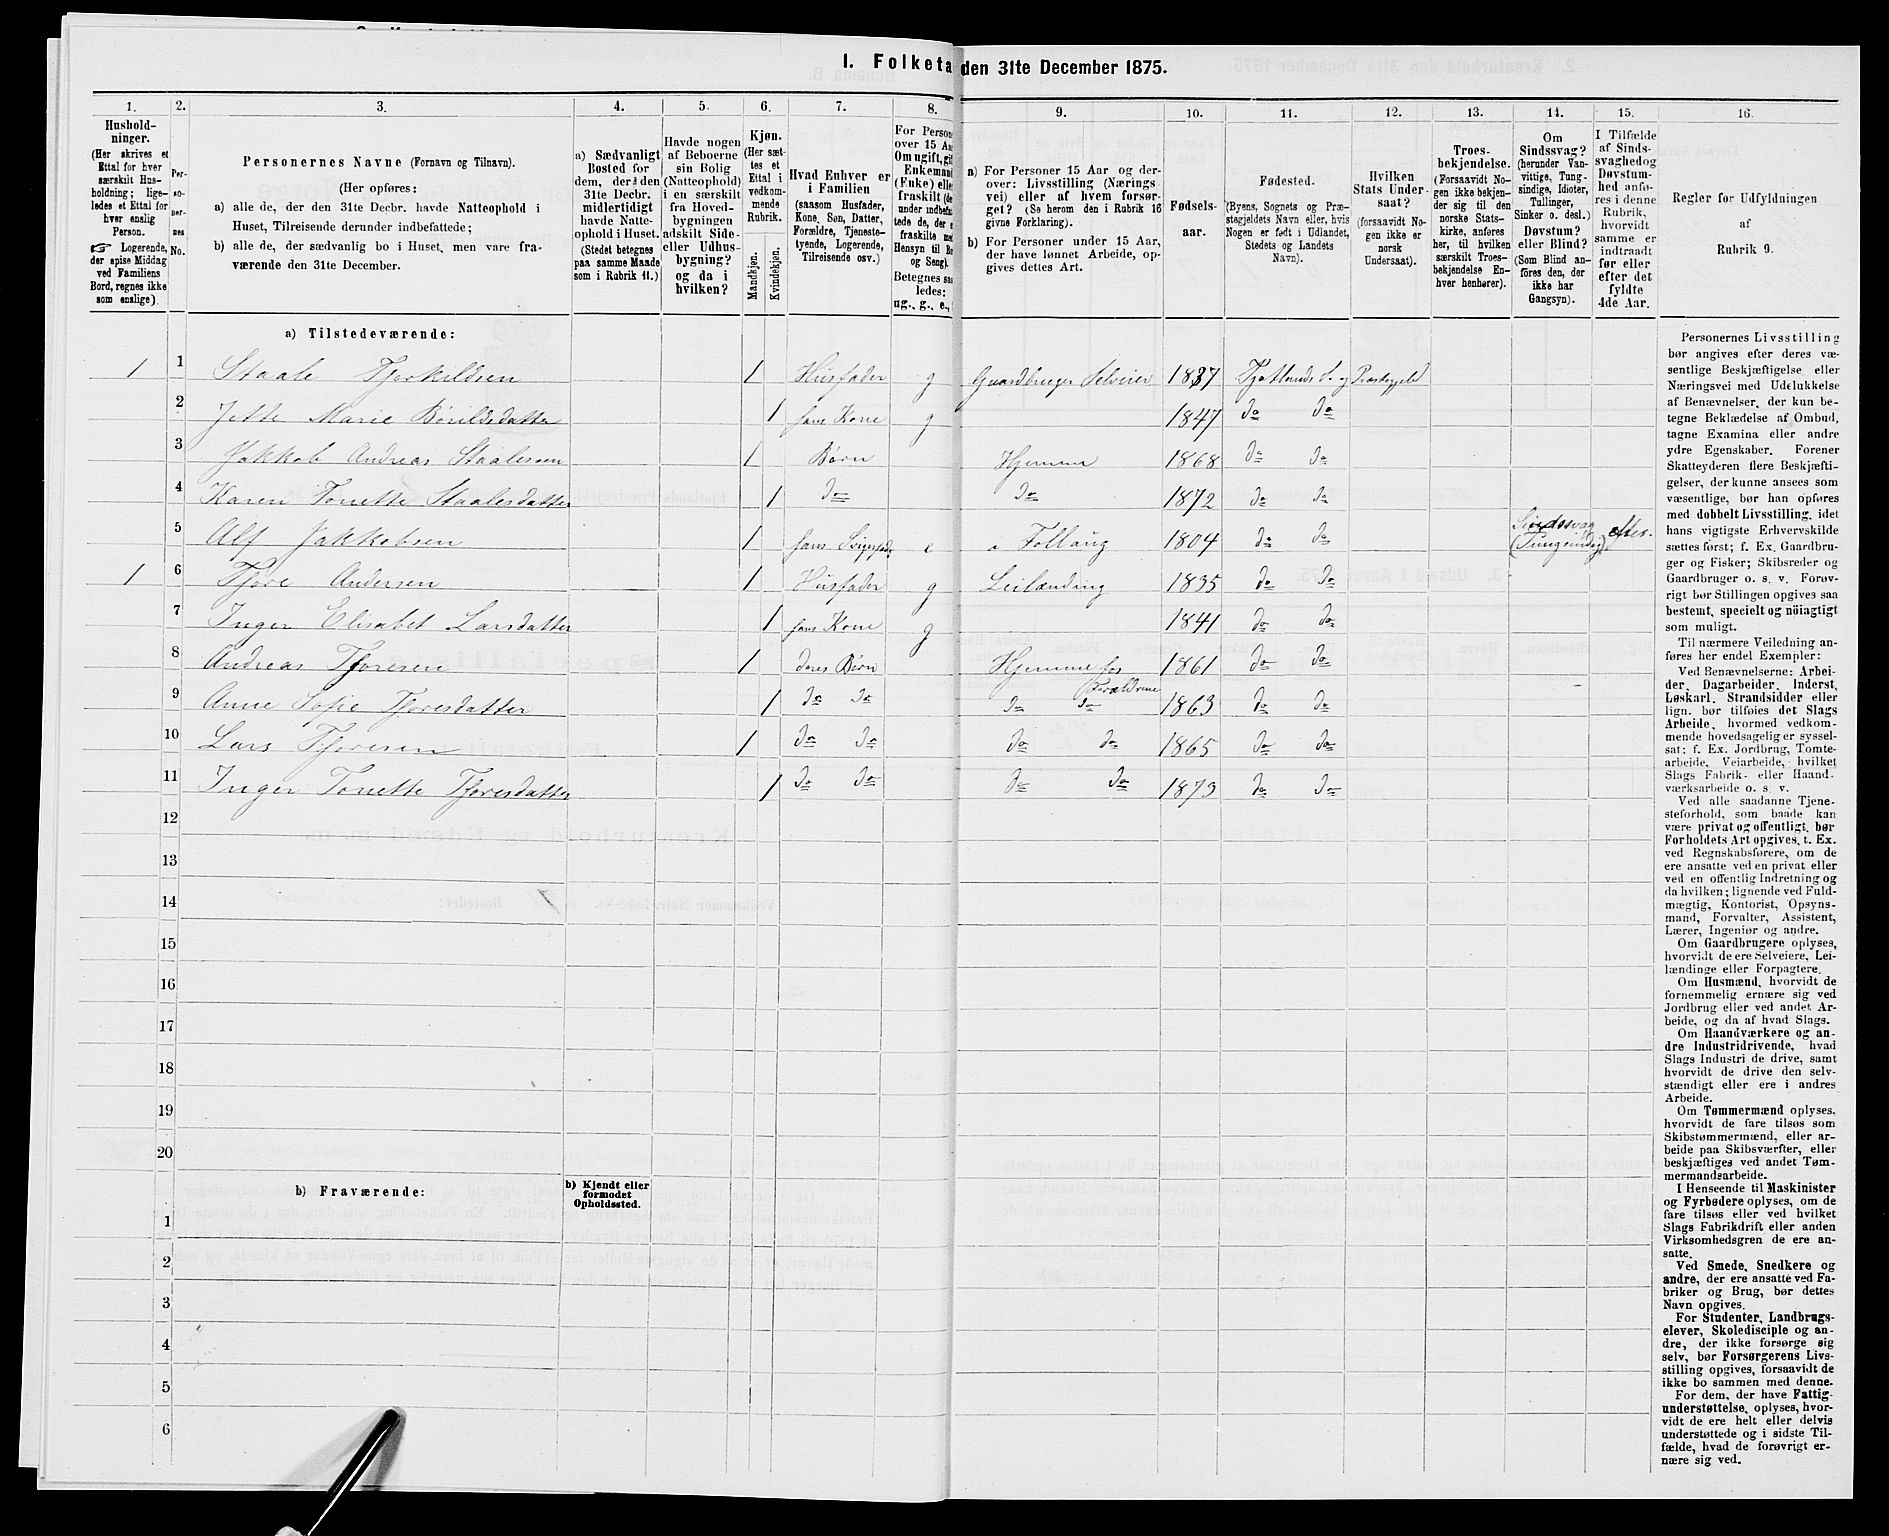 I. Folketa den 31te December 1875.
1. 2. 3. 4. 5. 6. 7. 8. 9. 10. 11. 12. 13. 14. 15. 16.
Hushold-
ninger.
(Her skrives et
Ettal for hver
særskilt Hus-
holdning; lige-
ledes et Ettal for
hver enslig
Person.
☞ Logerende,
der spise Middag
ved Familiens
Bord, regnes ikke
som enslige).
Per-
so-
ner-
nes
No.
Personernes Navne (Fornavn og Tilnavn).
(Her opføres:
a) alle de, der den 31te Decbr. havde Natteophold i
Huset, Tilreisende derunder indbefattede;
b) alle de, der sædvanlig bo i Huset, men vare fra-
værende den 31te December.
a) Sædvanligt
Bosted for
dem, der den
31te Decbr.
midlertidigt
havde Natte-
ophold i Huset.
(Stedet betegnes
paa samme Maade
som i Rubrik 11.)
Havde nogen
af Beboerne
sin Bolig
(Natteophold)
i en særskilt
fra Hoved-
bygningen
adskilt Side-
eller Udhus-
bygning?
og da i
hvilken?
Kjøn.
(Her sæt-
tes et
Ettal i
vedkom-
mende
Rubrik.
Mandkjøn.
Kvindekjøn.
Hvad Enhver er
i Familien
(saasom Husfader,
Kone, Søn, Datter,
Forældre, Tjeneste-
tyende, Logerende,
Tilreisende osv.)
For Person
over 15 Aa
Om ugift, gif
Enkemand
(Enke) elle
fraskilt (de
under indbefat
tede de, der e
fraskilte me
Hensyn til Bo
og Seng).
Betegnes saa
ledes:
ug., g., e.,
a) For Personer 15 Aar og der-
over: Livsstilling (Nærings
vei) eller af hvem forsør-
get? (Se herom den i Rubrik 16
givne Forklaring).
b) For Personer under 15 Aar,
der have lønnet Arbeide, op-
gives dettes Art.
Fødsels-
aar.
Fødested.
(Byens, Sognets og Præ-
stegjeldets Navn eller, hvis
Nogen er født i Udlandet,
Stedets og Landets
Navn).
Hvilken
Stats Under-
saat?
(forsaavidt No-
gen ikke er
norsk
Undersaat).
Troes-
bekjendelse.
(Forsaavidt No-
gen ikke bekjen-
der sig til den
norske Stats-
kirke, anføres
her, til hvilken
særskilt Troes-
bekjendelse En-
hver henhører).
Om
Sindssvag?
(herunder Van-
vittige, Tung-
sindige, Idioter,
Tullinger,
Sinker o. desl.)
Døvstum?
eller Blind?
(Som Blind an-
føres den, der
ikke har
Gangsyn).
I Tilfælde
af Sinds-
svaghed og
Døvstum-
hed anfø-
res i denne
Rubrik,
hvorvidt
samme er
indtraadt
før eller
efter det
fyldte
4de Aar.
Regler for Udfyldningen
af
Rubrik 9.
a) Tilstedeværende:
1 1 Staale Tjorkildsen 1 Husfader g Gaardbruger Selveier 1837 Fjotlands S. og Præstegjeld
2 Jette Marie Børildsdatter 1 hans Kone g 1847 do do
3 Jakkob Andreas Staalesen 1 Børn Hjemme 1868 do do
4 Karen Tonette Staalesdatter 1 do do 1872 do do
5 Alf Jakkobsen 1 hans Svigerfader e a Follaug 1804 do do Sindssvag (Tungsindig) efter.
1 6 Tjore Andersen 1 Husfader g Leilænding 1835 do do
7 Inger Elisabet Larsdatter 1 hans Kone g 1841 do do
8 Andreas Tjoresen 1 deres Børn Hjemme hos Forældrene 1861 do do
9 Anne Sofie Tjoresdatter 1 do do do do 1863 do do
10 Lars Tjoresen 1 do do do do 1865 do do
11 Inger Tonette Tjoresdatter 1 do do do do 1873 do do
12
13
14
15
16
17
18
19
20
b) Fraværende:
b) Kjendt eller
formodet
Opholdssted.
1
2
3
4
5
6
Personernes Livsstilling
bør angives efter deres væ-
sentlige Beskjæftigelse eller
Næringsvei med Udelukkelse
af Benævnelser, der kun be-
tegne Beklædelse af Ombud,
tagne Examina eller andre
ydre Egenskaber. Forener
Skatteyderen flere Beskjæfti-
gelser, der kunne ansees som
væsentlige, bør han opføres
med dobbelt Livsstilling, idet
hans vigtigste Erhvervskilde
sættes først; f. Ex. Gaardbru-
ger og Fisker; Skibsreder og
Gaardbruger o. s. v. Forøv-
rigt bør Stillingen opgives saa
bestemt, specielt og nöiagtigt
som muligt.
Til nærmere Veiledning an-
føres her endel Exempler:
Ved Benævnelserne: Arbei-
der, Dagarbeider, Inderst,
Løskarl, Strandsidder eller
lign. bør tilføies det Slags
Arbeide, hvormed vedkom-
mende hovedsagelig er syssel-
sat; f. Ex. Jordbrug, Tomte-
arbeide, Veiarbeide, hvilket
Slags Fabrik- eller Haand-
værksarbeide o. s. v.
Ved alle saadanne Tjene-
steforhold, som baade kan
være privat og offentligt, bør
Forholdets Art opgives, t. Ex.
ved Regnskabsførere, om de
ere ansatte ved en privat eller
ved en offentlig Indretning og
da hvilken; lignende ved Fuld-
mægtig, Kontorist, Opsyns-
mand, Forvalter, Assistent,
Lærer, Ingeniør og andre.
Om Gaardbrugere oplyses,
hvorvidt de ere Selveiere, Lei-
lændinge eller Forpagtere.
Om Husmænd, hvorvidt de
fornemmelig ernære sig ved
Jordbrug eller ved andet Ar-
beide, og da af hvad Slags.
Om Haandværkere og an-
dre Industridrivende, hvad
Slags Industri de drive, samt
hvorvidt de drive den selv-
stændigt eller ere i andres
Arbeide.
Om Tømmermænd oplyses,
hvorvidt de fare tilsøs som
Skibstømmermænd, eller ar-
beide paa Skibsværfter, eller
beskjæftiges ved andet Tøm-
mermandsarbeide.
I Henseende til Maskinister
og Fyrbødere oplyses, om de
fare tilsøs eller ved hvilket
Slags Fabrikdrift eller anden
Virksomhedsgren de ere an-
satte.
Ved Smede, Snedkere og
andre, der ere ansatte ved Fa-
briker og Brug, bør dettes
Navn opgives.
For Studenter, Landbrugs-
elever, Skoledisciple og an-
dre, der ikke forsørge sig
selv, bør Forsørgerens Livs-
stilling opgives, forsaavidt de
ikke bo sammen med denne.
For dem, der have Fattig-
understøttelse, oplyses, hvor-
vidt de ere helt eller delvis
understøttede og i sidste Til-
fælde, hvad de forøvrigt er-
nære sig ved.